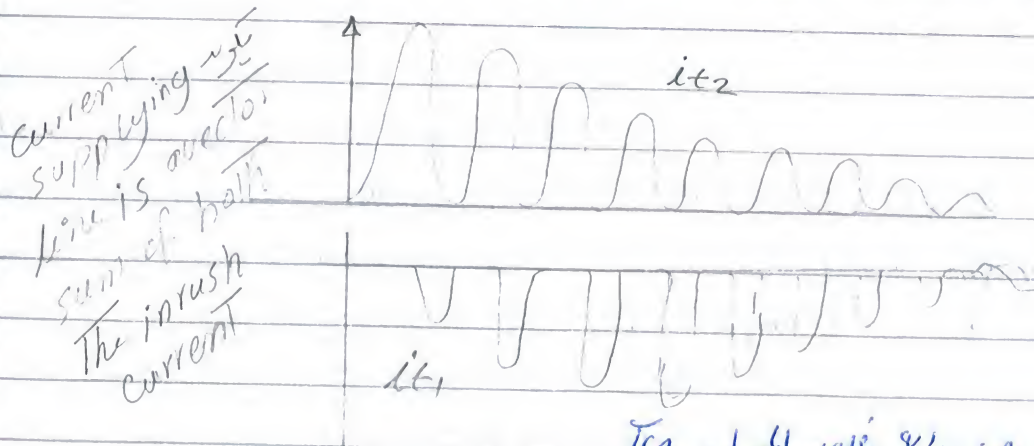 current
supplying
line is a vector
sum of both
The inrush
current
it2
it1